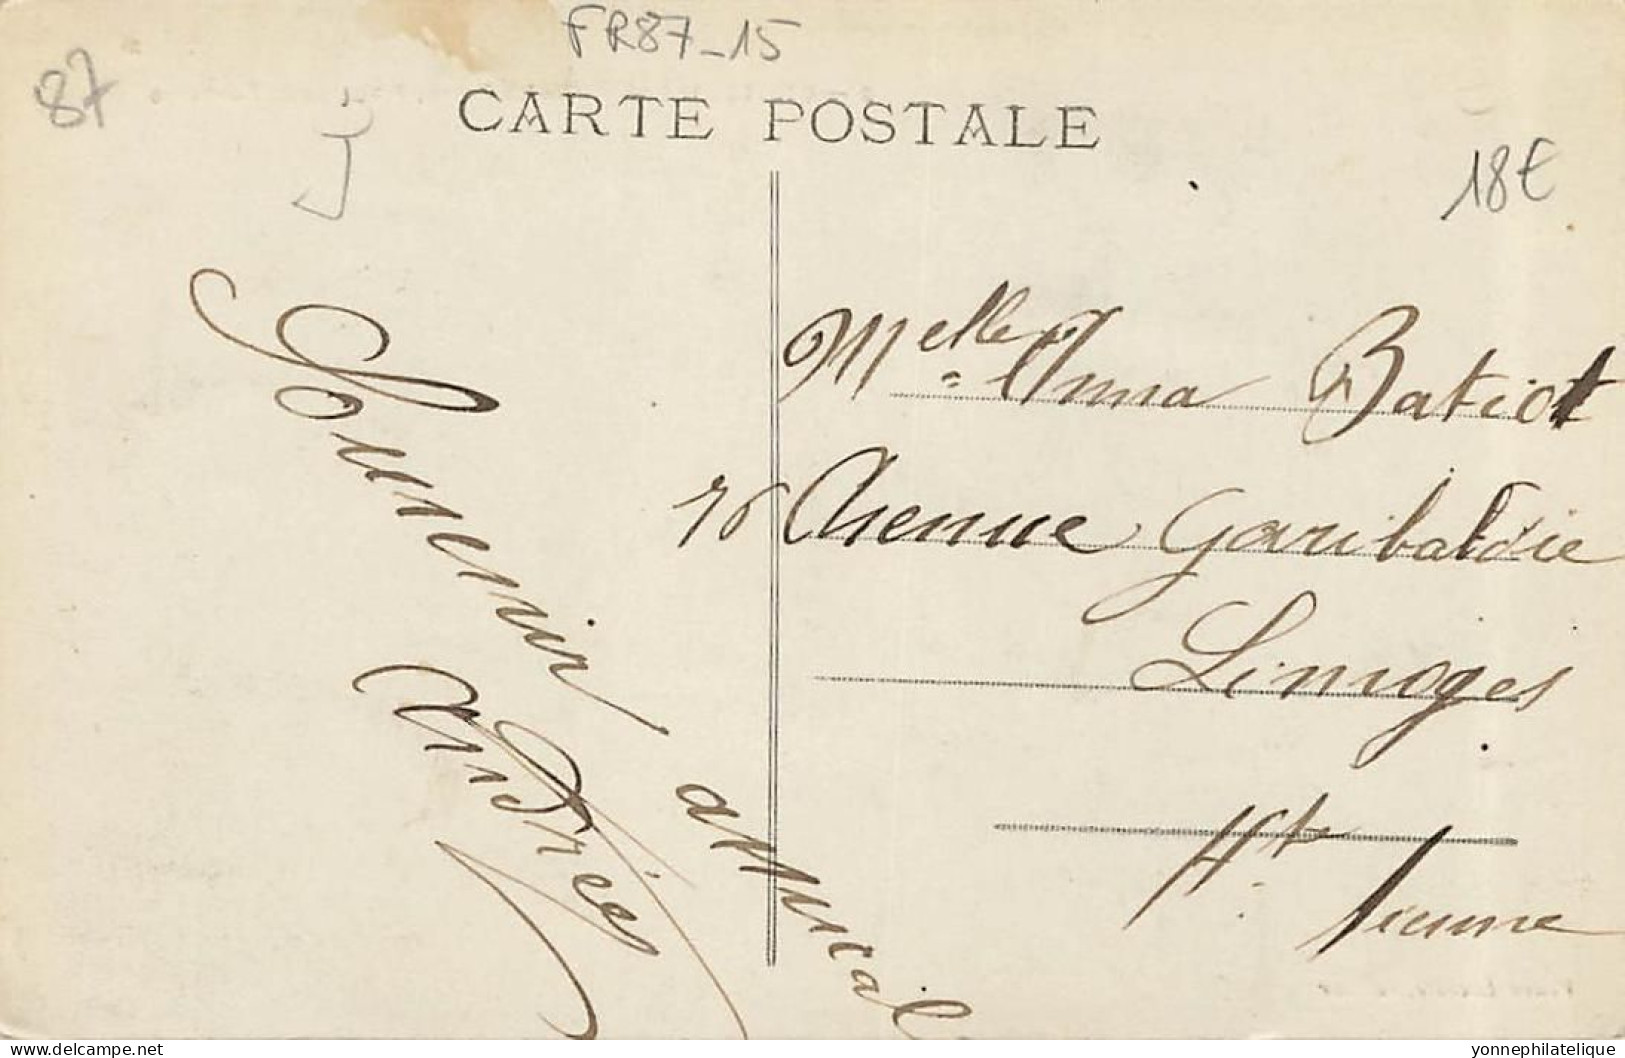 FR87-15
87
CARTE POSTALE
18€
Souvenir amical
Andrée
Melle Anna Batiot
76 Avenue Garibaldie
Limoges
Hte Vienne
delcampe.net
yonnephilatelique